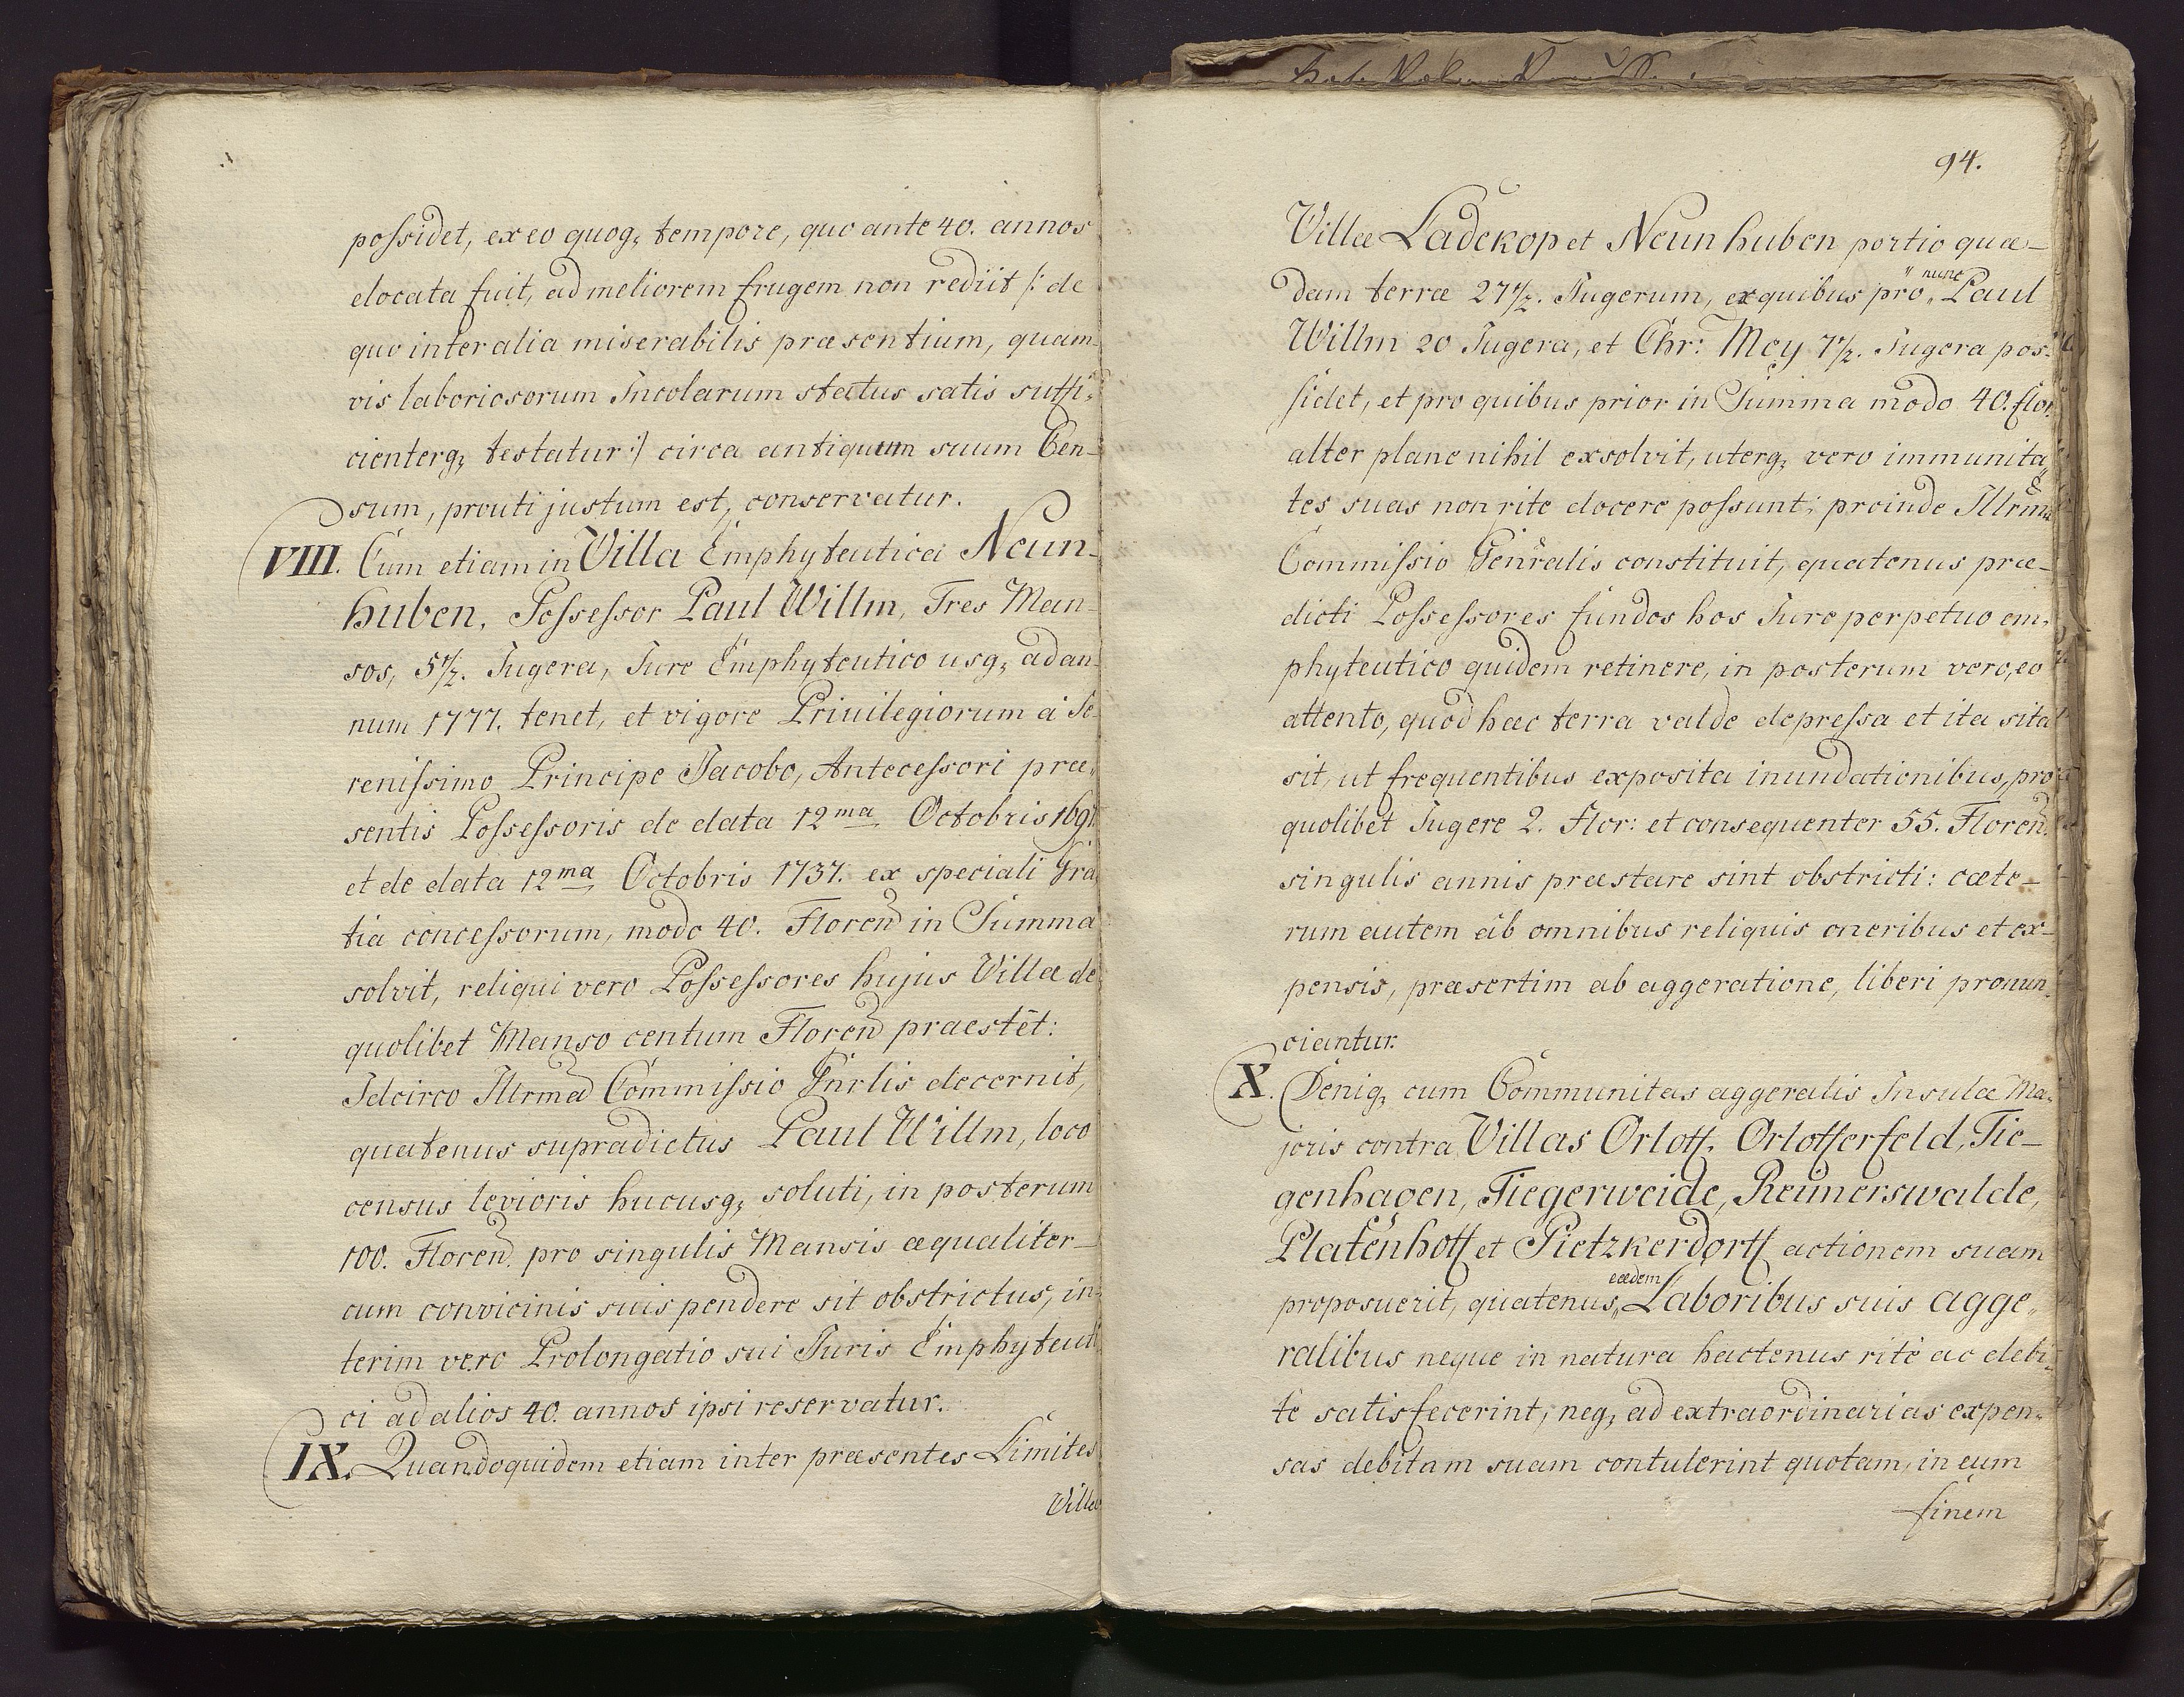 possidet, ex eo quoq, tempore, quo ante 40. annos
elocata fuit, ad meliorem frugem non rediit /: de
quo inter alia miserabilis præsentium, quam-
vis laboriosorum Incolarum status satis suffi-
cienterq, testatur :/ circa antiquum suum Cen-
sum, prouti justum est, conservatur.
VIII. Cum etiam in Villa Emphyteutica Neun-
huben, Possessor Paul Willm, Tres Man-
sos, 5 1/2. Jugera, Jure Emphyteutico usq, ad an-
num 1777. tenet, et vigore Privilegiorum à Se-
renissimo Principe Jacobo, Antecessori præ-
sentis Possessoris de data 12ma Octobris 1697.
et de data 12ma Octobris 1737. ex speciali Gra-
tia concessorum, modo 40. Floren in Summa
solvit, reliqui vero Possessores hujus Villæ de
quolibet Manso centum Floren praestēt:
Idcirco Illrma Commissio Gnrlis decernit,
quatenus supradictus Paul Willm, loco
census levioris hucusq, soluti, in posterum
100. Floren. pro singulis Mansis æqualiter
cum convicinis suis pendere sit obstrictus, in-
terim vero Prolongatio sui Juris Emphyteuti-
ci ad alios 40. annos ipsi reservatur.
IX. Quandoquidem etiam inter præsentes Limites
Villæ
94.
Villæ Ladekop et Neunhuben portio quæ-
dam terræ 27 1/2. Jugerum, ex quibus pro nunc Paul
Willm 20 Jugera, et Chr: Mey 7 1/2. Jugera pos-
sidet, et pro quibus prior in Summa modo 40. flor.
alter plane nihil exsolvit, uterq, vero immunita-
tes suas non rite docere possunt; proinde Illrma
Commissio Genralis constituit, quatenus præ-
dicti Possessores fundos hos Jure perpetuo em-
phyteutico quidem retinere, in posterum vero, eo
attento, quod hæc terra valde depressa et ita sita
sit, ut frequentibus exposita inundationibus, pro
quolibet Jugere 2. Flor: et consequenter 55. Floren.
singulis annis præstare sint obstricti: cæte-
rum autem ab omnibus reliquis oneribus et ex-
pensis, præsertim ab aggeratione, liberi pronun-
ciantur.
X. Deniq, cum Communitas aggeralis Insulæ Ma-
joris contra Villas Orloff, Orlofferfeld, Tie-
genhagen, Tiegerweide, Reimerswalde,
Platenhoff et Pietzkerdorff actionem suam
proposuerit, quatenus eædem Laboribus suis agge-
ralibus neque in natura hactenus ritè ac debi-
tè satisfecerint, neq, ad extraordinarias expen-
sas debitam suam contulerint quotam, in eum
finem